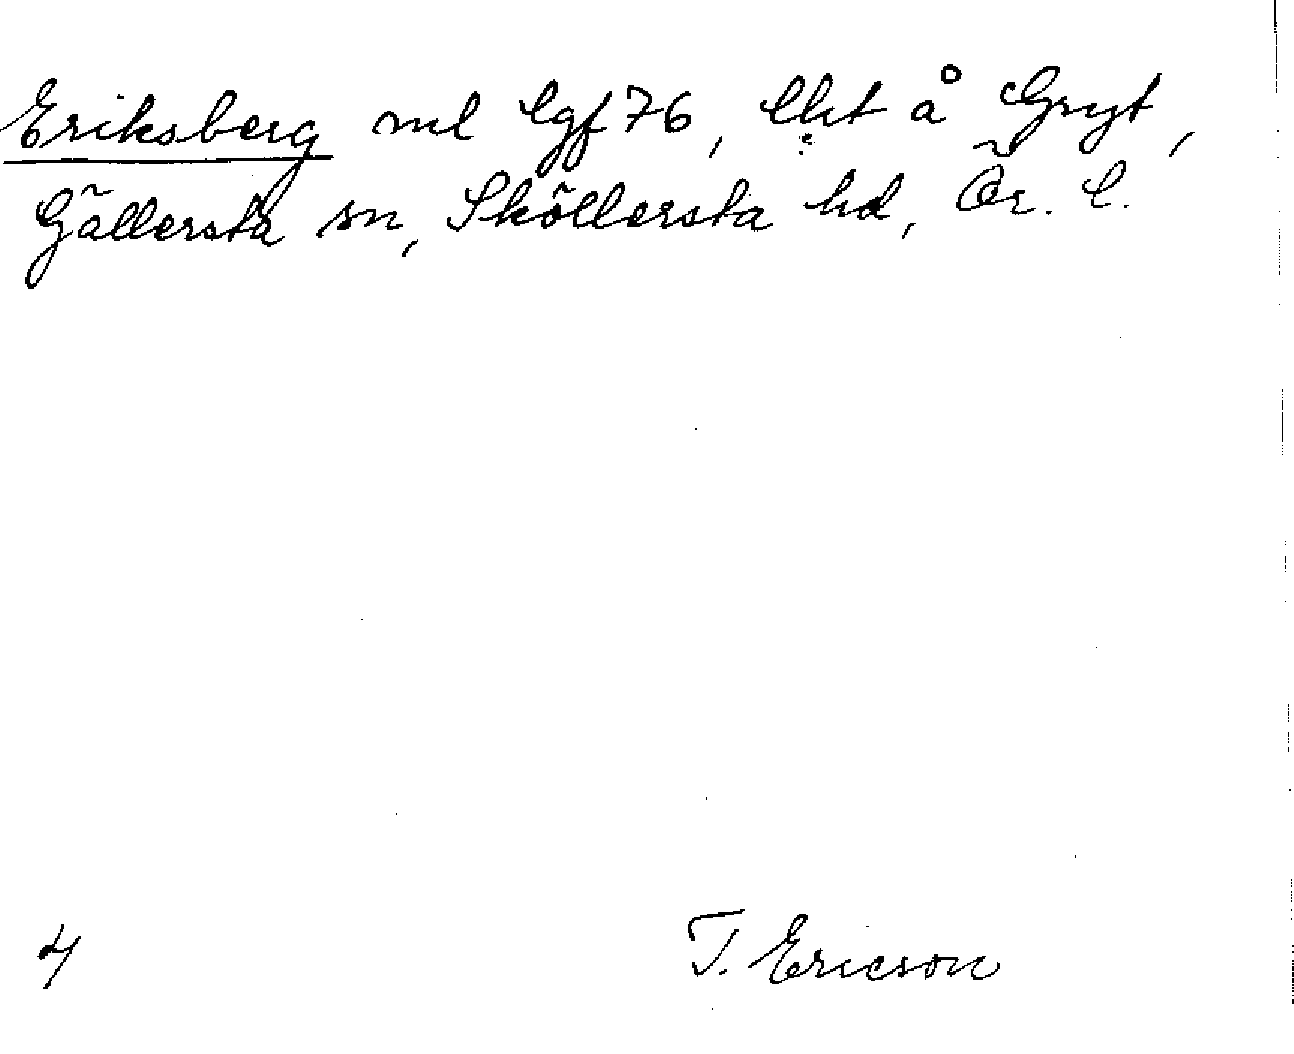 Eriksberg ml lgf 76, lht å Gryt,
Gällersta sn, Sköllersta hd, Ör. l.
4 T. Ericson